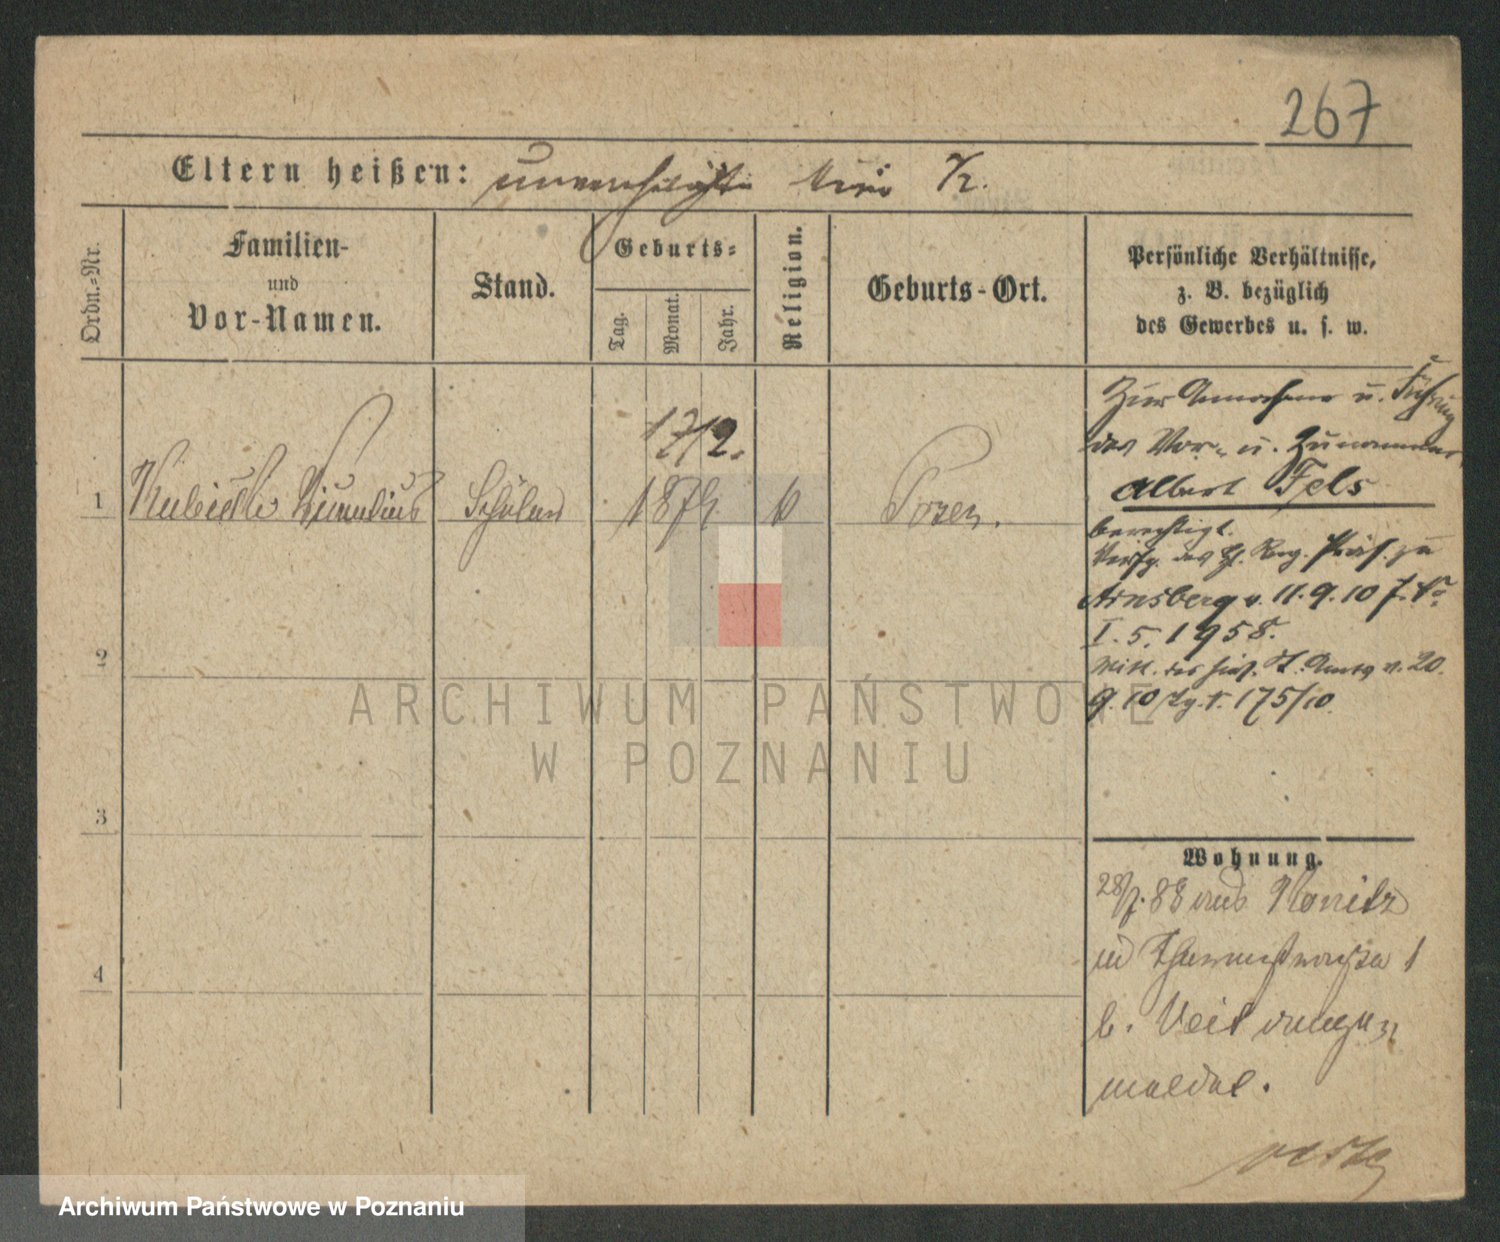 267
Eltern heißen: unverehelichte K.
Ordn.-Nr.
Familien-
und
Vor-Namen.
Stand.
Geburts-
Tag.
Monat.
Jahr.
Religion.
Geburts-Ort.
Persönliche Verhältnisse,
z. B. bezüglich
des Gewerbes u. s. w.
17/2.
1
Schüler
Posen.
Zur Annahme u. Führung
des Vor- u. Zunamens
Albert Fels
berechtigt.
Verfg. des H. Reg. Präs. zu
Arnsberg v. 11.9.10
I. 5. 1958.
Mitt. des v. 20.
9.10 175/10
2
3
4
Wohnung.
28/7.88 aus Konitz
in 1
b. Veit
meldet.
ARCHIWUM PAŃSTWOWE
W POZNANIU
Archiwum Państwowe w Poznaniu